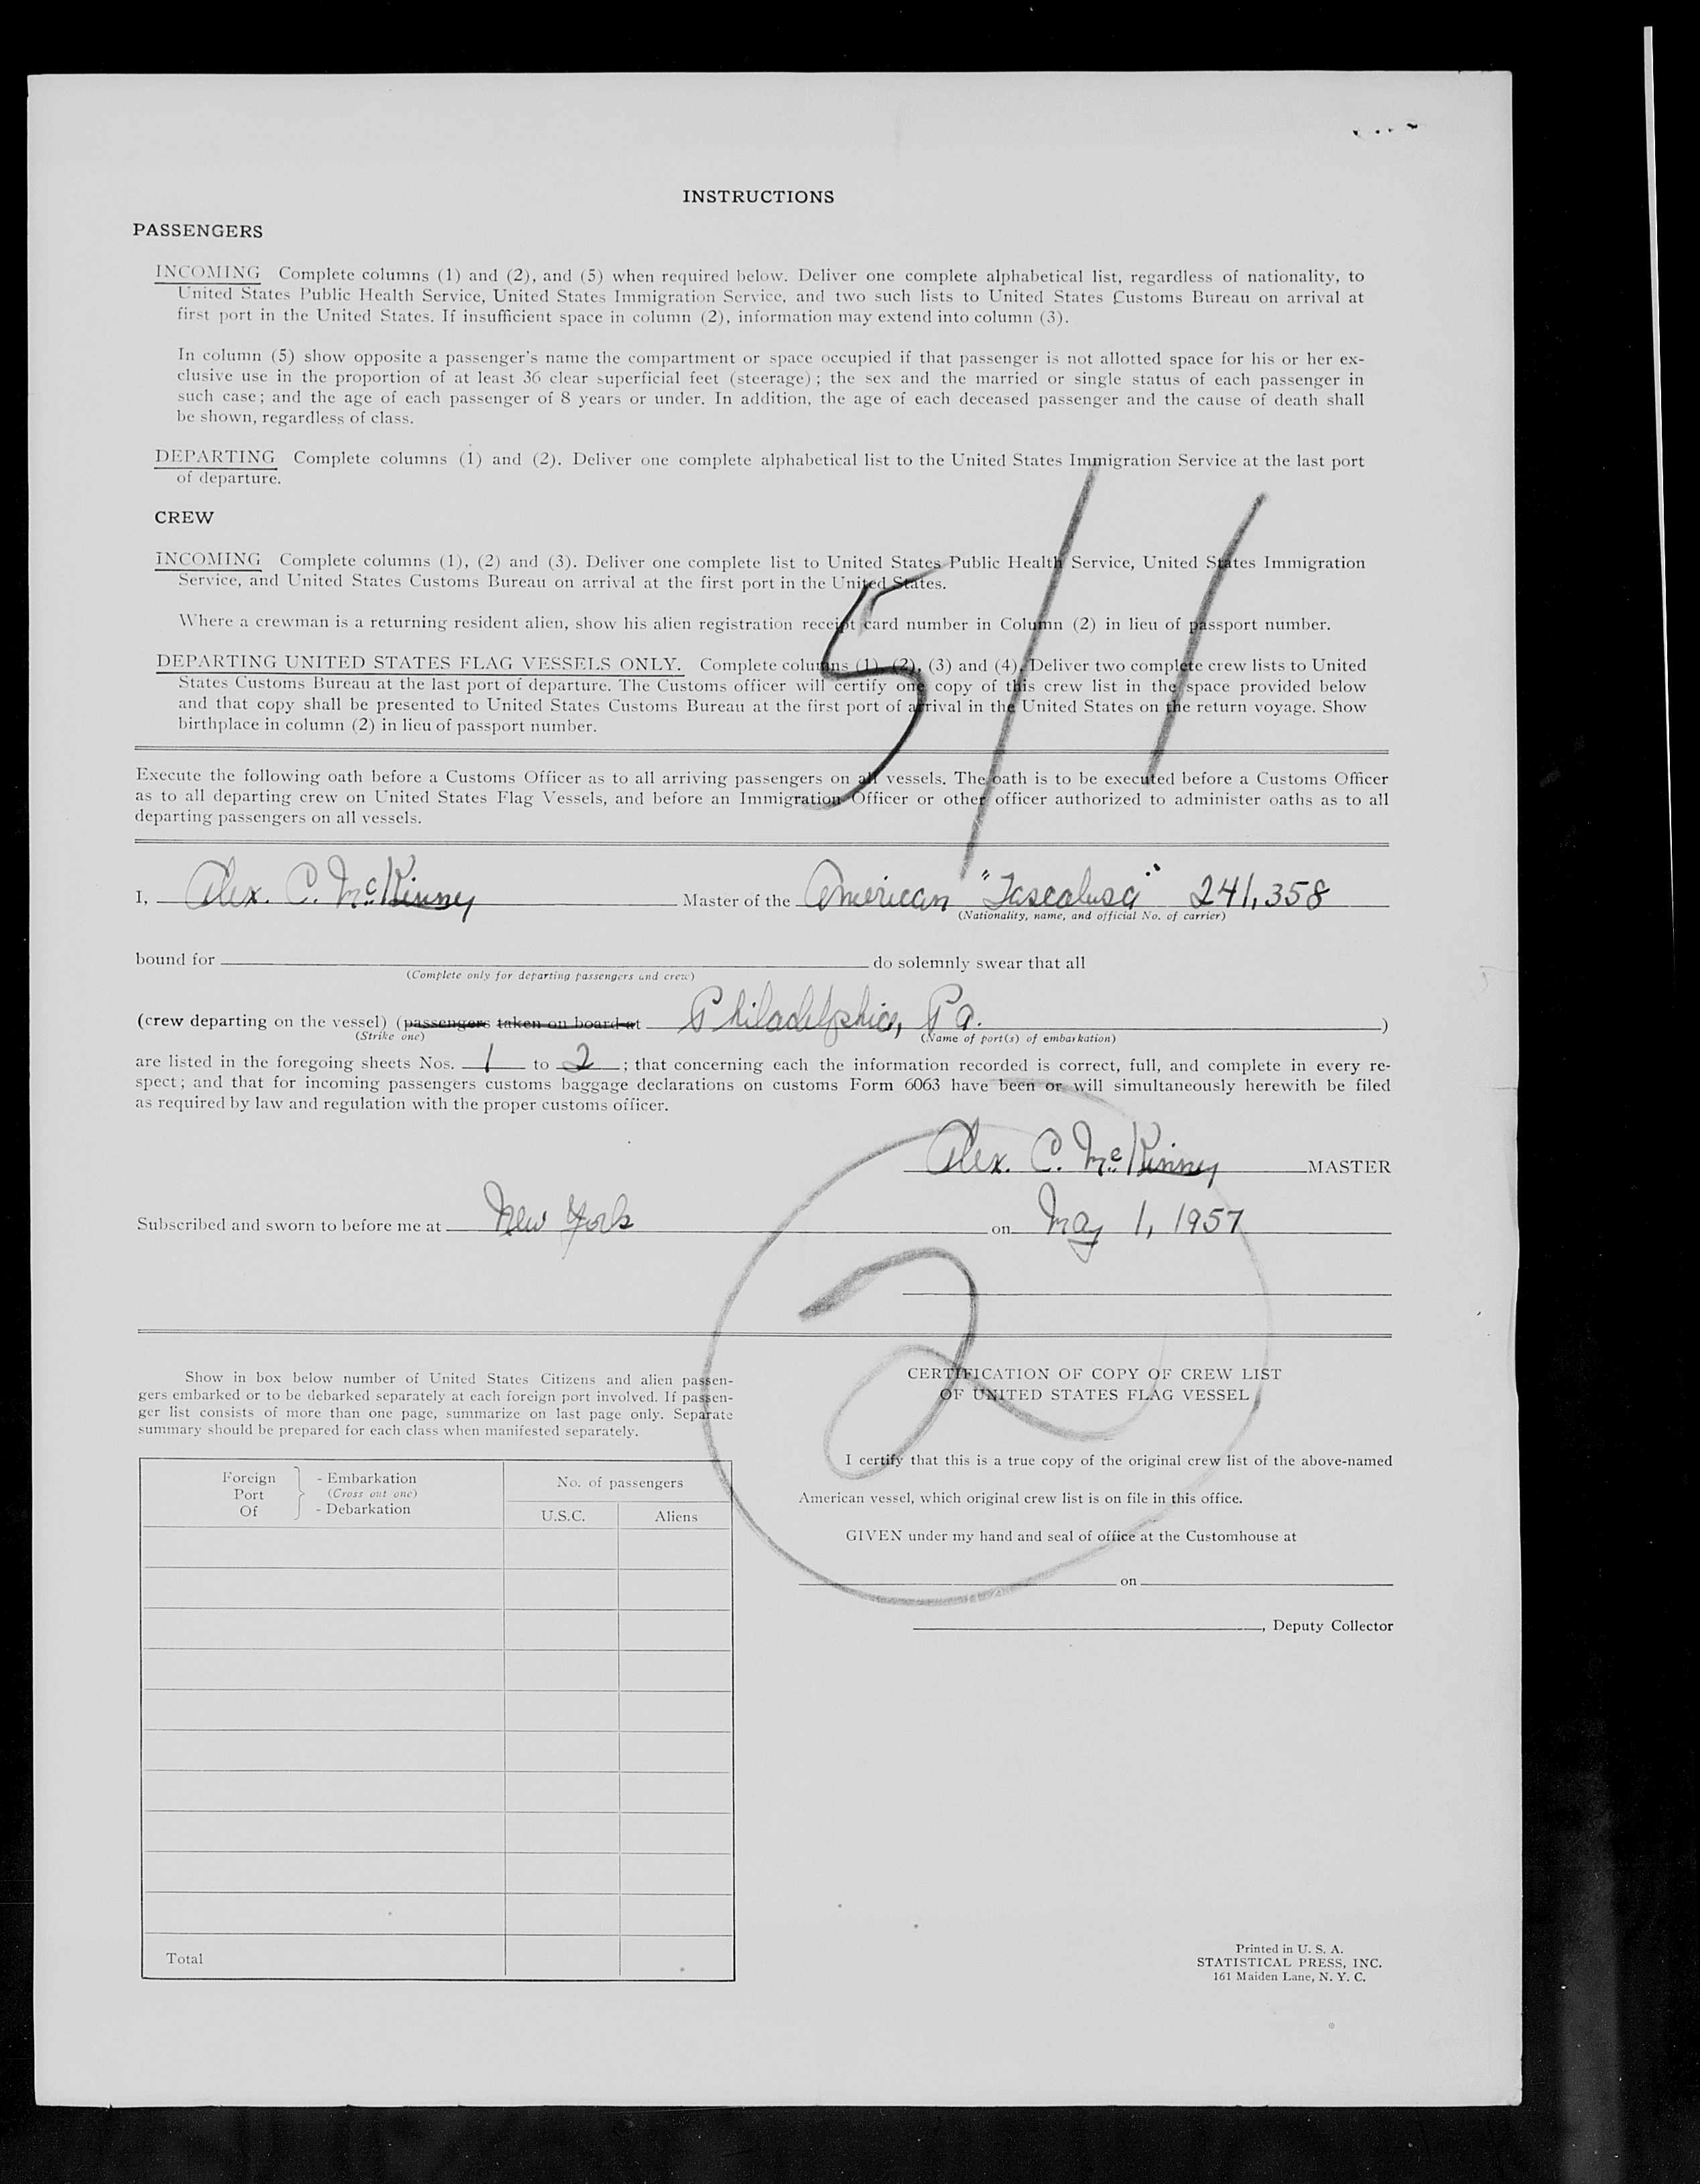 INSTRUCTIONS
PASSENGERS
INCOMING Complete columns (1) and (2), and (5) when required below. Deliver one complete alphabetical list, regardless of nationality, to
United States Public Health Service, United States Immigration Service, and two such lists to United States Customs Bureau on arrival at
first port in the United States. If insufficient space in column (2), information may extend into column (3).
In column (5) show opposite a passenger's name the compartment or space occupied if that passenger is not allotted space for his or her ex-
clusive use in the proportion of at least 36 clear superficial feet (steerage); the sex and the married or single status of each passenger in
such case; and the age of each passenger of 8 years or under. In addition, the age of each deceased passenger and the cause of death shall
be shown, regardless of class.
DEPARTING Complete columns (1) and (2). Deliver one complete alphabetical list to the United States Immigration Service at the last port
of departure.
CREW
INCOMING Complete columns (1), (2) and (3). Deliver one complete list to United States Public Health Service, United States Immigration
Service, and United States Customs Bureau on arrival at the first port in the United States.
Where a crewman is a returning resident alien, show his alien registration receipt card number in Column (2) in lieu of passport number.
DEPARTING UNITED STATES FLAG VESSELS ONLY. Complete columns (1), (2), (3) and (4). Deliver two complete crew lists to United
States Customs Bureau at the last port of departure. The Customs officer will certify one copy of this crew list in the space provided below
and that copy shall be presented to United States Customs Bureau at the first port of arrival in the United States on the return voyage. Show
birthplace in column (2) in lieu of passport number.
5/1
Execute the following oath before a Customs Officer as to all arriving passengers on all vessels. The oath is to be executed before a Customs Officer
as to all departing crew on United States Flag Vessels, and before an Immigration Officer or other officer authorized to administer oaths as to all
departing passengers on all vessels.
I, Alex. C. McKinney Master of the American "Tascalusa" 241,358
(Nationality, name, and official No. of carrier)
bound for do solemnly swear that all
(Complete only for departing passengers and crew)
(crew departing on the vessel) (passengers taken on board at Philadelphia, Pa. )
(Strike one) (Name of port(s) of embarkation)
are listed in the foregoing sheets Nos. 1 to 2; that concerning each the information recorded is correct, full, and complete in every re-
spect; and that for incoming passengers customs baggage declarations on customs Form 6063 have been or will simultaneously herewith be filed
as required by law and regulation with the proper customs officer.
Alex. C. McKinney MASTER
Subscribed and sworn to before me at New York on May 1, 1957
2
Show in box below number of United States Citizens and alien passen-
gers embarked or to be debarked separately at each foreign port involved. If passen-
ger list consists of more than one page, summarize on last page only. Separate
summary should be prepared for each class when manifested separately.
Foreign Port Of - Embarkation
(Cross out one)
- Debarkation
No. of passengers
U.S.C. Aliens
Total
CERTIFICATION OF COPY OF CREW LIST
OF UNITED STATES FLAG VESSEL
I certify that this is a true copy of the original crew list of the above-named
American vessel, which original crew list is on file in this office.
GIVEN under my hand and seal of office at the Customhouse at
on
, Deputy Collector
Printed in U. S. A.
STATISTICAL PRESS, INC.
161 Maiden Lane, N. Y. C.